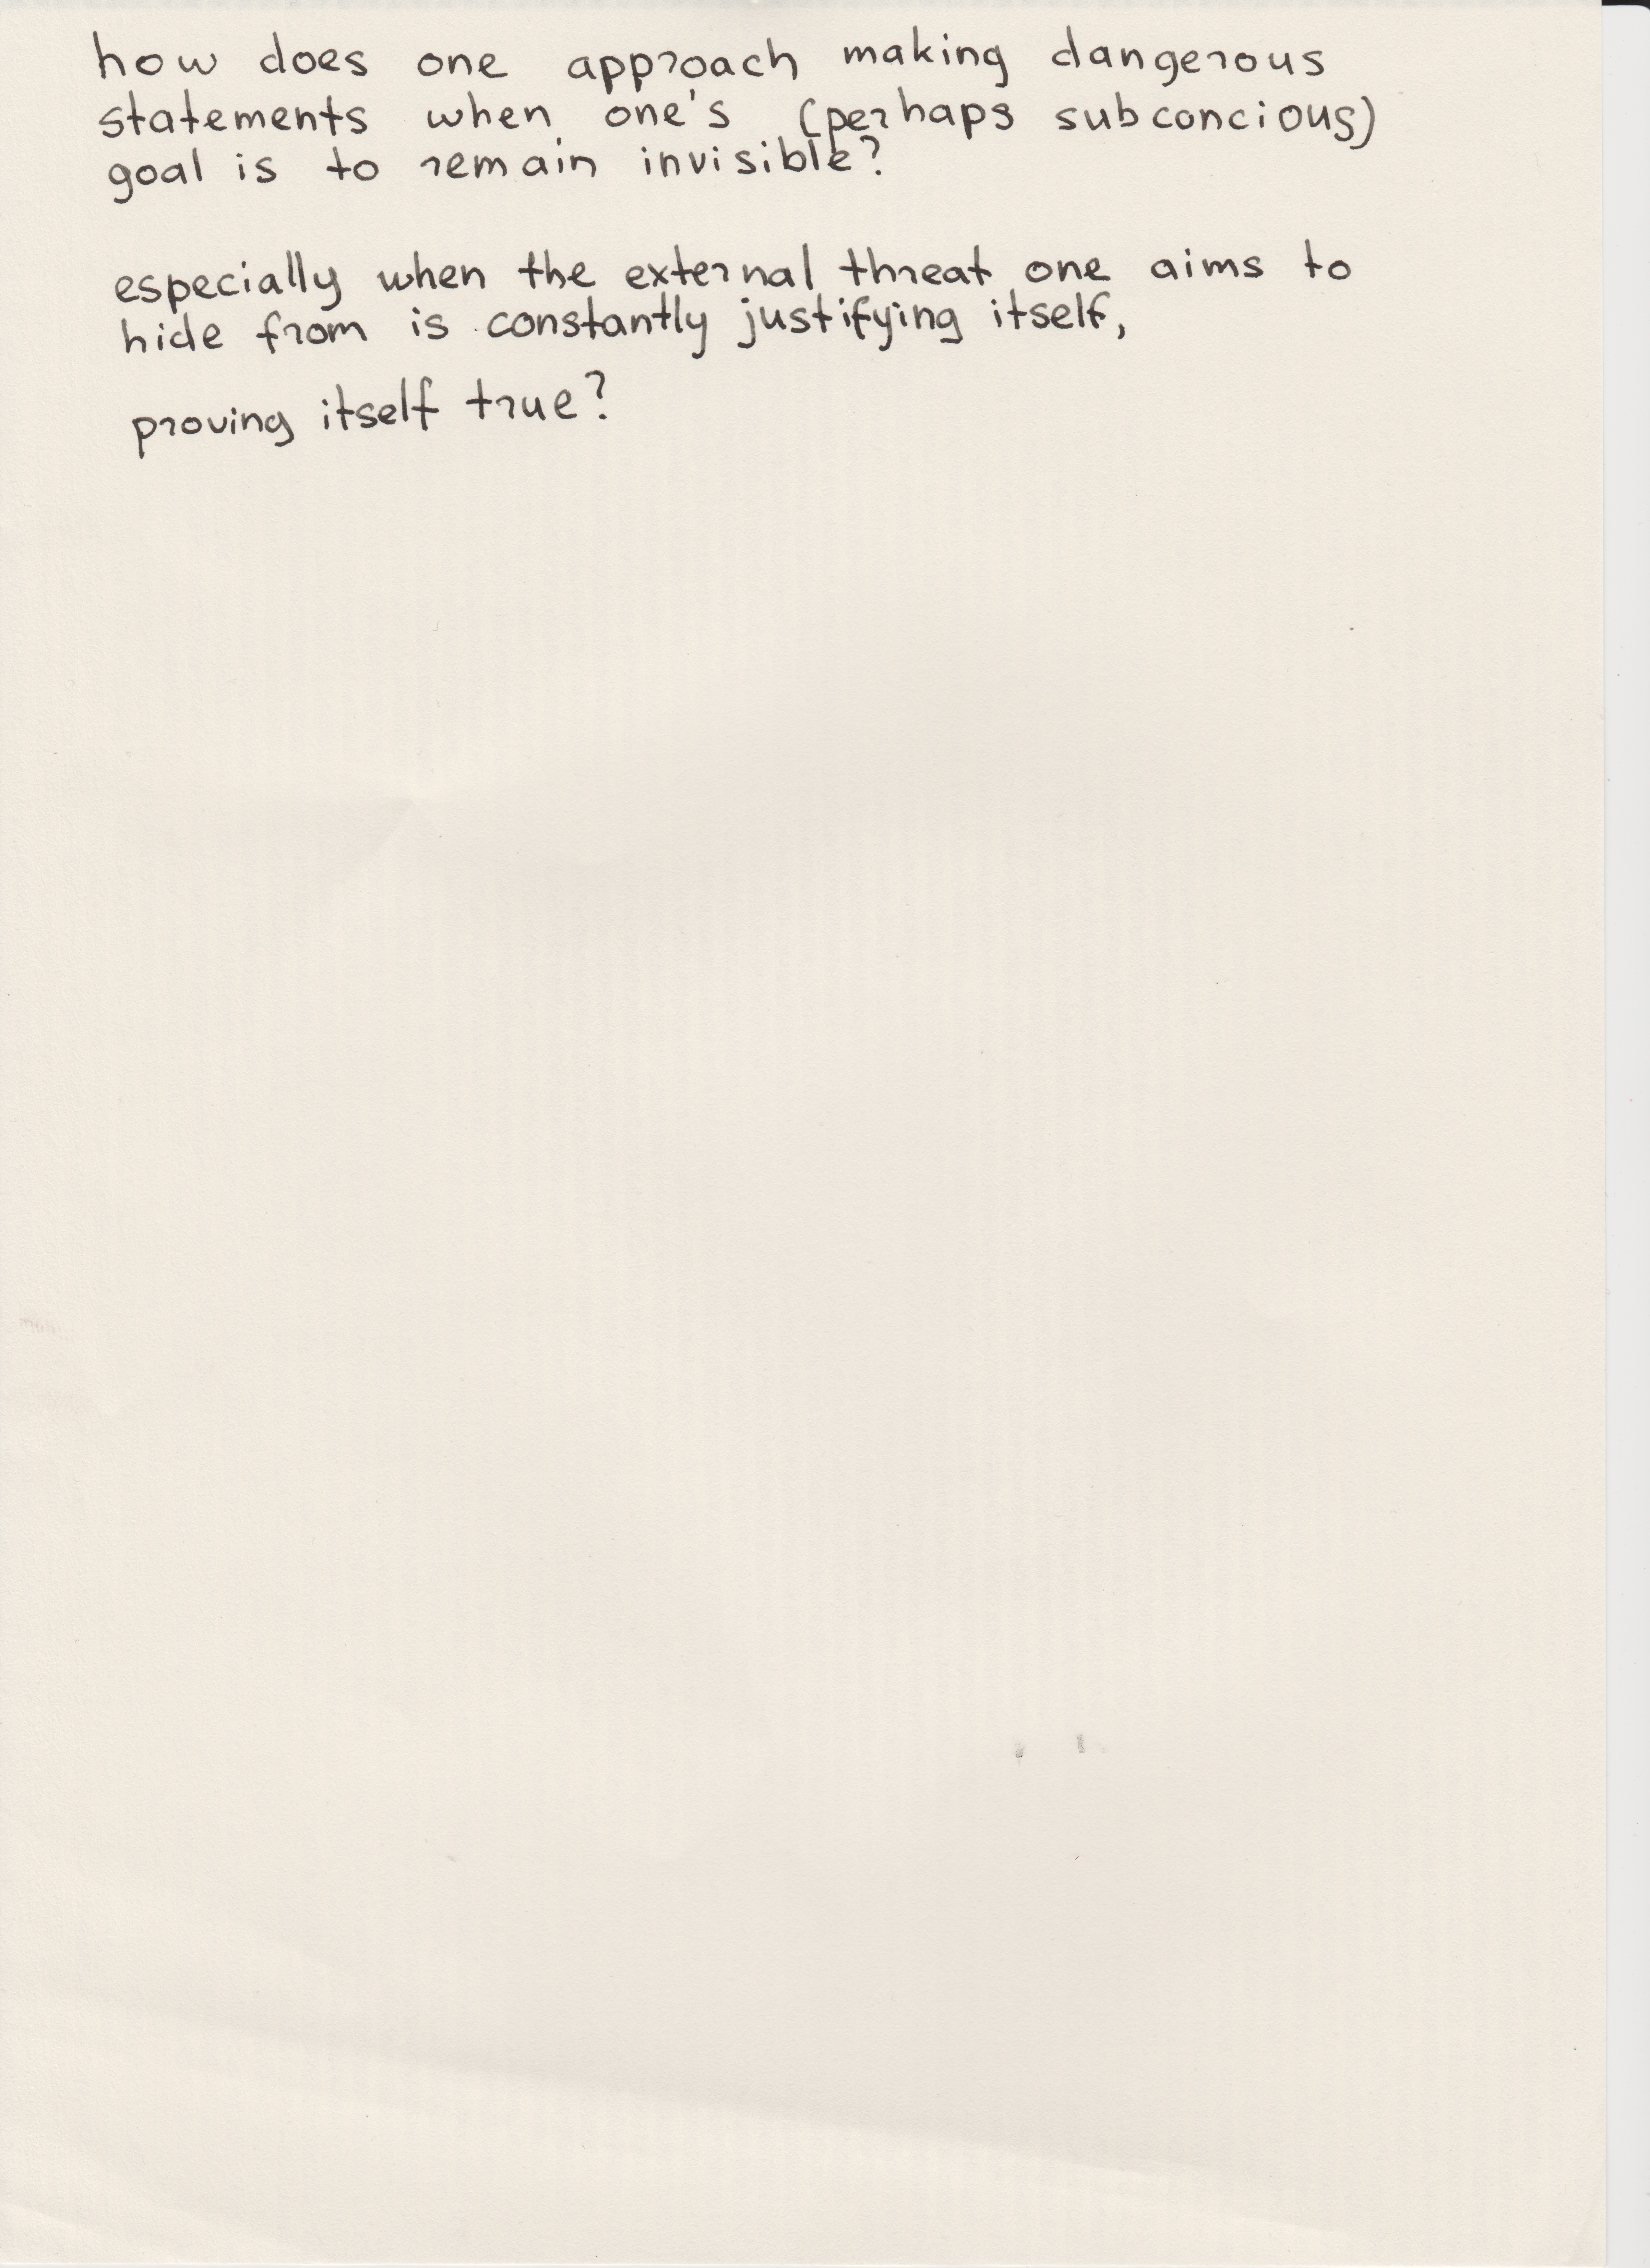 how does one approach making dangerous
statements when one's (perhaps subconcious)
goal is to remain invisible?
especially when the external threat one aims to
hide from is constantly justifying itself,
proving itself true?